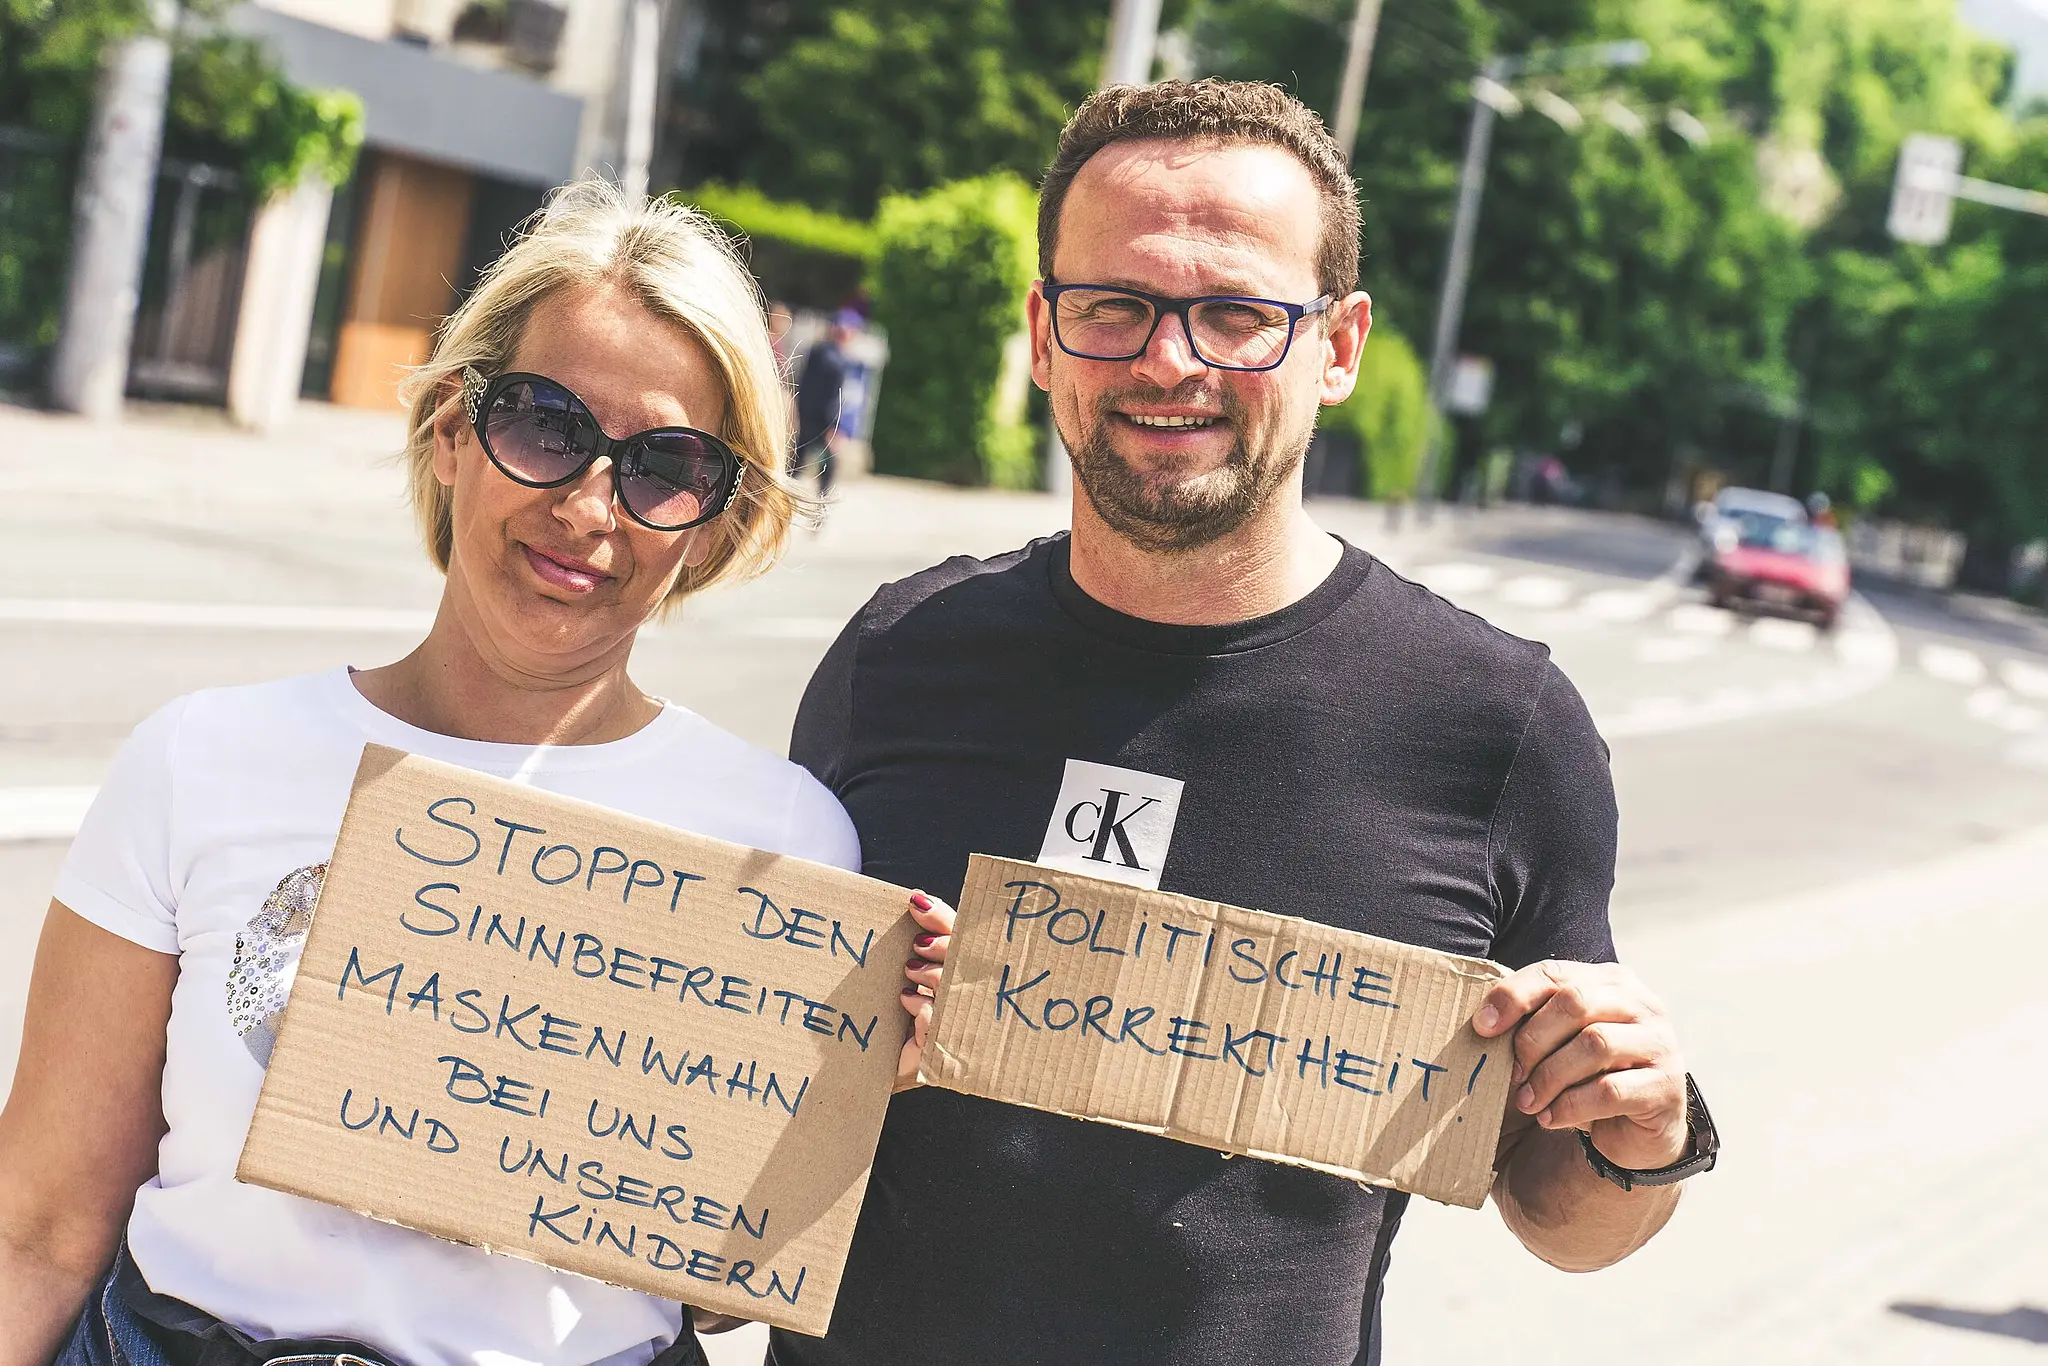 STOPPT DEN
SINNBEFREITEN
MASKENWAHN
BEI UNS
UND UNSEREN
KiNDERN
CK
POLiTiSCHE
KORREKTHEiT!